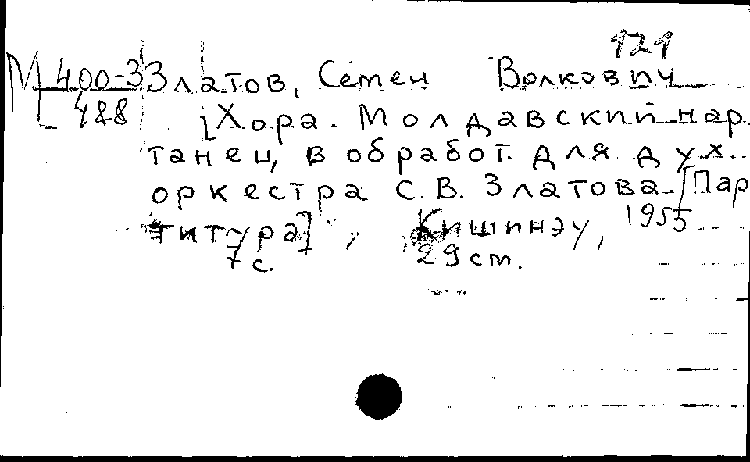 121
М 400-3 Златов, Семен Волкович
488 [Хора. Молдавский нар.
танец, в обработ. для дух.
оркестра С. В. Златова. [Пар
титура], Кишинэу, 1955
7 с. 29 ст.